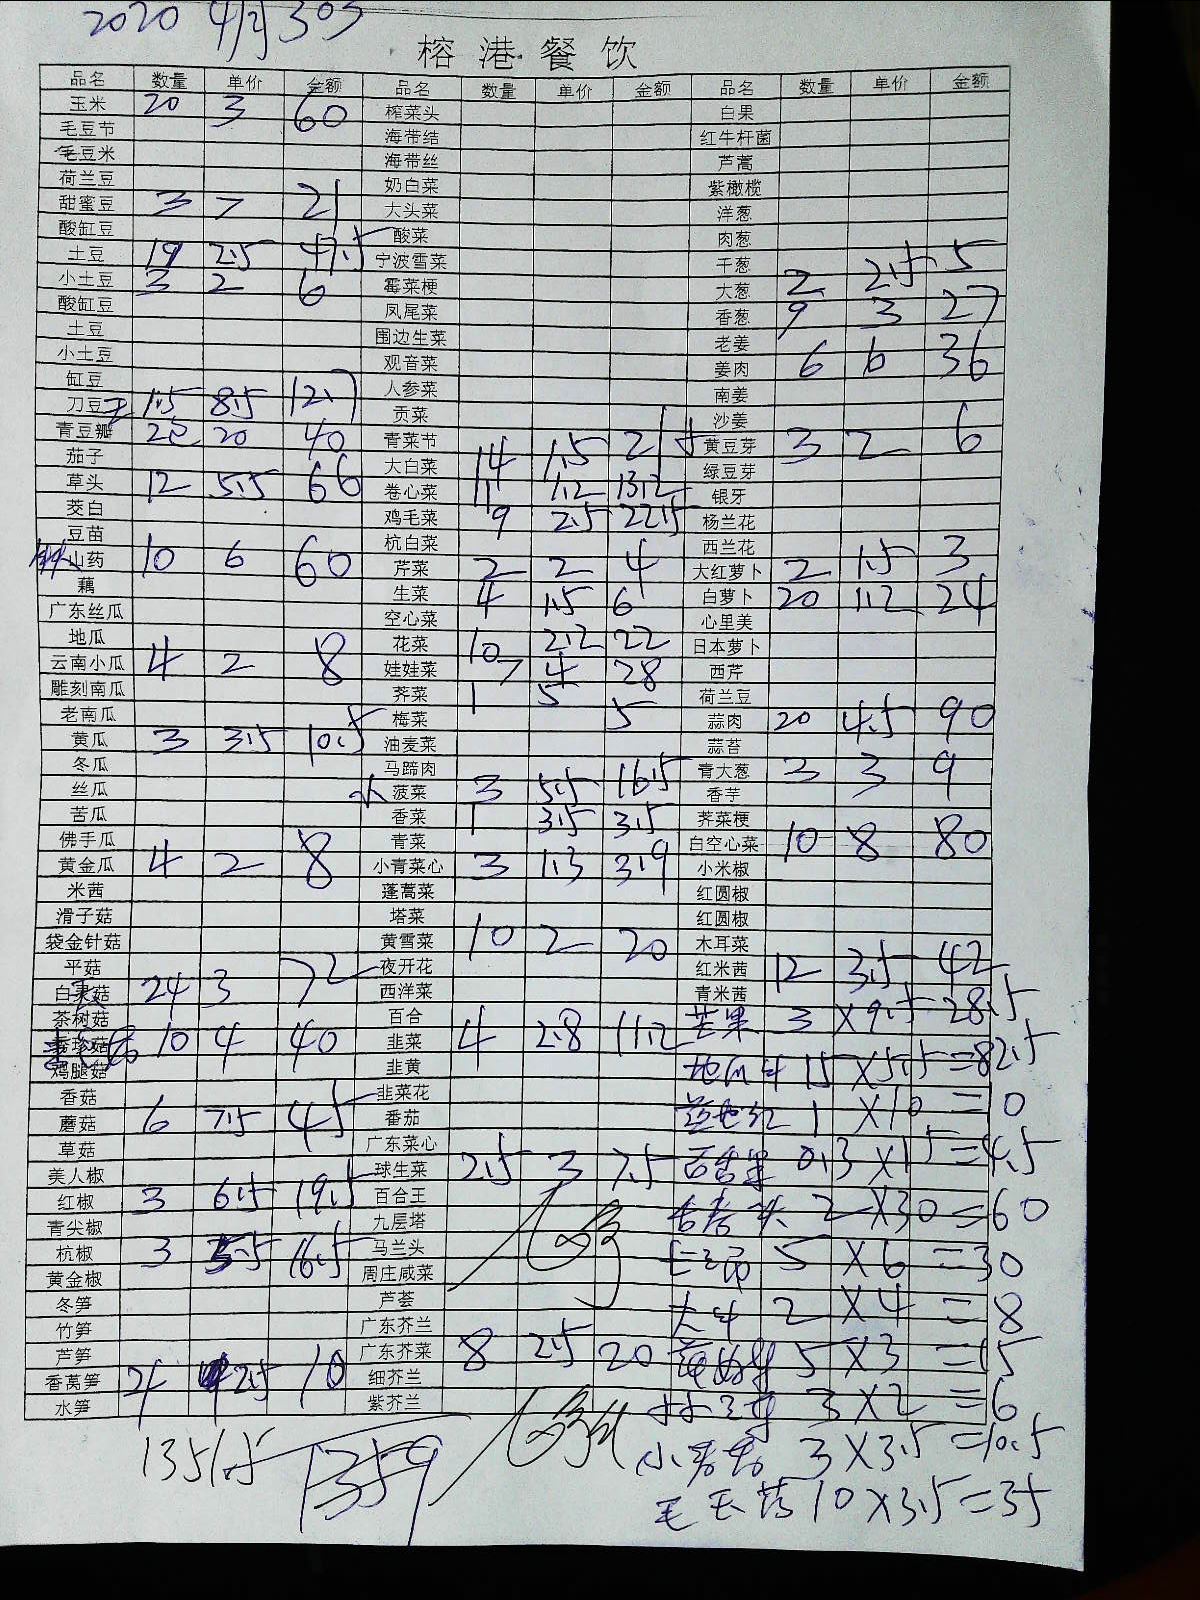 2020 4月30日
榕港餐饮
品名 数量 单价 金额 品名 数量 单价 金额 品名 数量 单价 金额
玉米 20 3 60 榨菜头 白果
毛豆节 海带结 红牛杆菌
毛豆米 海带丝 芦蒿
荷兰豆 奶白菜 紫橄榄
甜蜜豆 3 7 21 大头菜 洋葱
酸缸豆 酸菜 肉葱
土豆 19 2.5 47.5 宁波雪菜 干葱
小土豆 3 2 6 霉菜梗 大葱 2 2.5 5
酸缸豆 凤尾菜 香葱 9 3 27
土豆 围边生菜 老姜
小土豆 观音菜 姜肉 6 6 36
缸豆 人参菜 南姜
刀豆 1.5 8.5 12.7 贡菜 沙姜
青豆瓣 2包 20 40 青菜节 黄豆芽 3 2 6
茄子 大白菜 14 1.5 21 绿豆芽
草头 12 5.5 66 卷心菜 11 1.2 13.2 银牙
茭白 鸡毛菜 9 2.5 22.5 杨兰花
豆苗 杭白菜 西兰花
铁山药 10 6 60 芹菜 2 2 4 大红萝卜 2 1.5 3
藕 生菜 4 1.5 6 白萝卜 20 1.2 24
广东丝瓜 空心菜 心里美
地瓜 花菜 10 2.2 22 日本萝卜
云南小瓜 4 2 8 娃娃菜 7 4 28 西芹
雕刻南瓜 荠菜 1 5 5 荷兰豆
老南瓜 梅菜 蒜肉 20 4.5 90
黄瓜 3 3.5 10.5 油麦菜 蒜苔
冬瓜 马蹄肉 青大葱 3 3 9
丝瓜 水菠菜 3 5.5 16.5 香芋
苦瓜 香菜 1 3.5 3.5 荠菜梗
佛手瓜 青菜 白空心菜 10 8 80
黄金瓜 4 2 8 小青菜心 3 1.3 3.9 小米椒
米茜 蓬蒿菜 红圆椒
滑子菇 塔菜 红圆椒
袋金针菇 黄雪菜 10 2 20 木耳菜
平菇 夜开花 红米茜 12 3.5 42
白菇 24 3 72 西洋菜 青米茜
茶树菇 百合 芒果 3 ×9.5 28.5
秀珍菇 10 4 40 韭菜 4 2.8 11.2
鸡腿菇 韭黄 地瓜 15 ×5.5 =82.5
香菇 韭菜花 1 ×10 =10
蘑菇 6 7.5 45 番茄
草菇 广东菜心 百香果 0.3 ×15 =4.5
美人椒 球生菜 2.5 3 7.5
红椒 3 6.5 19.5 百合王 头 2 ×30 =60
青尖椒 九层塔
杭椒 3 5.5 16.5 马兰头 5 ×6 =30
黄金椒 周庄咸菜
冬笋 芦荟 2 ×4 =8
竹笋 广东芥兰
芦笋 广东芥菜 8 2.5 20 5 ×3 =15
香莴笋 4 2.5 10 细芥兰
水笋 紫芥兰 3 ×2 =6
1351.5 1359 小 3 ×3.5 =10.5
毛 10 ×3.5 =35